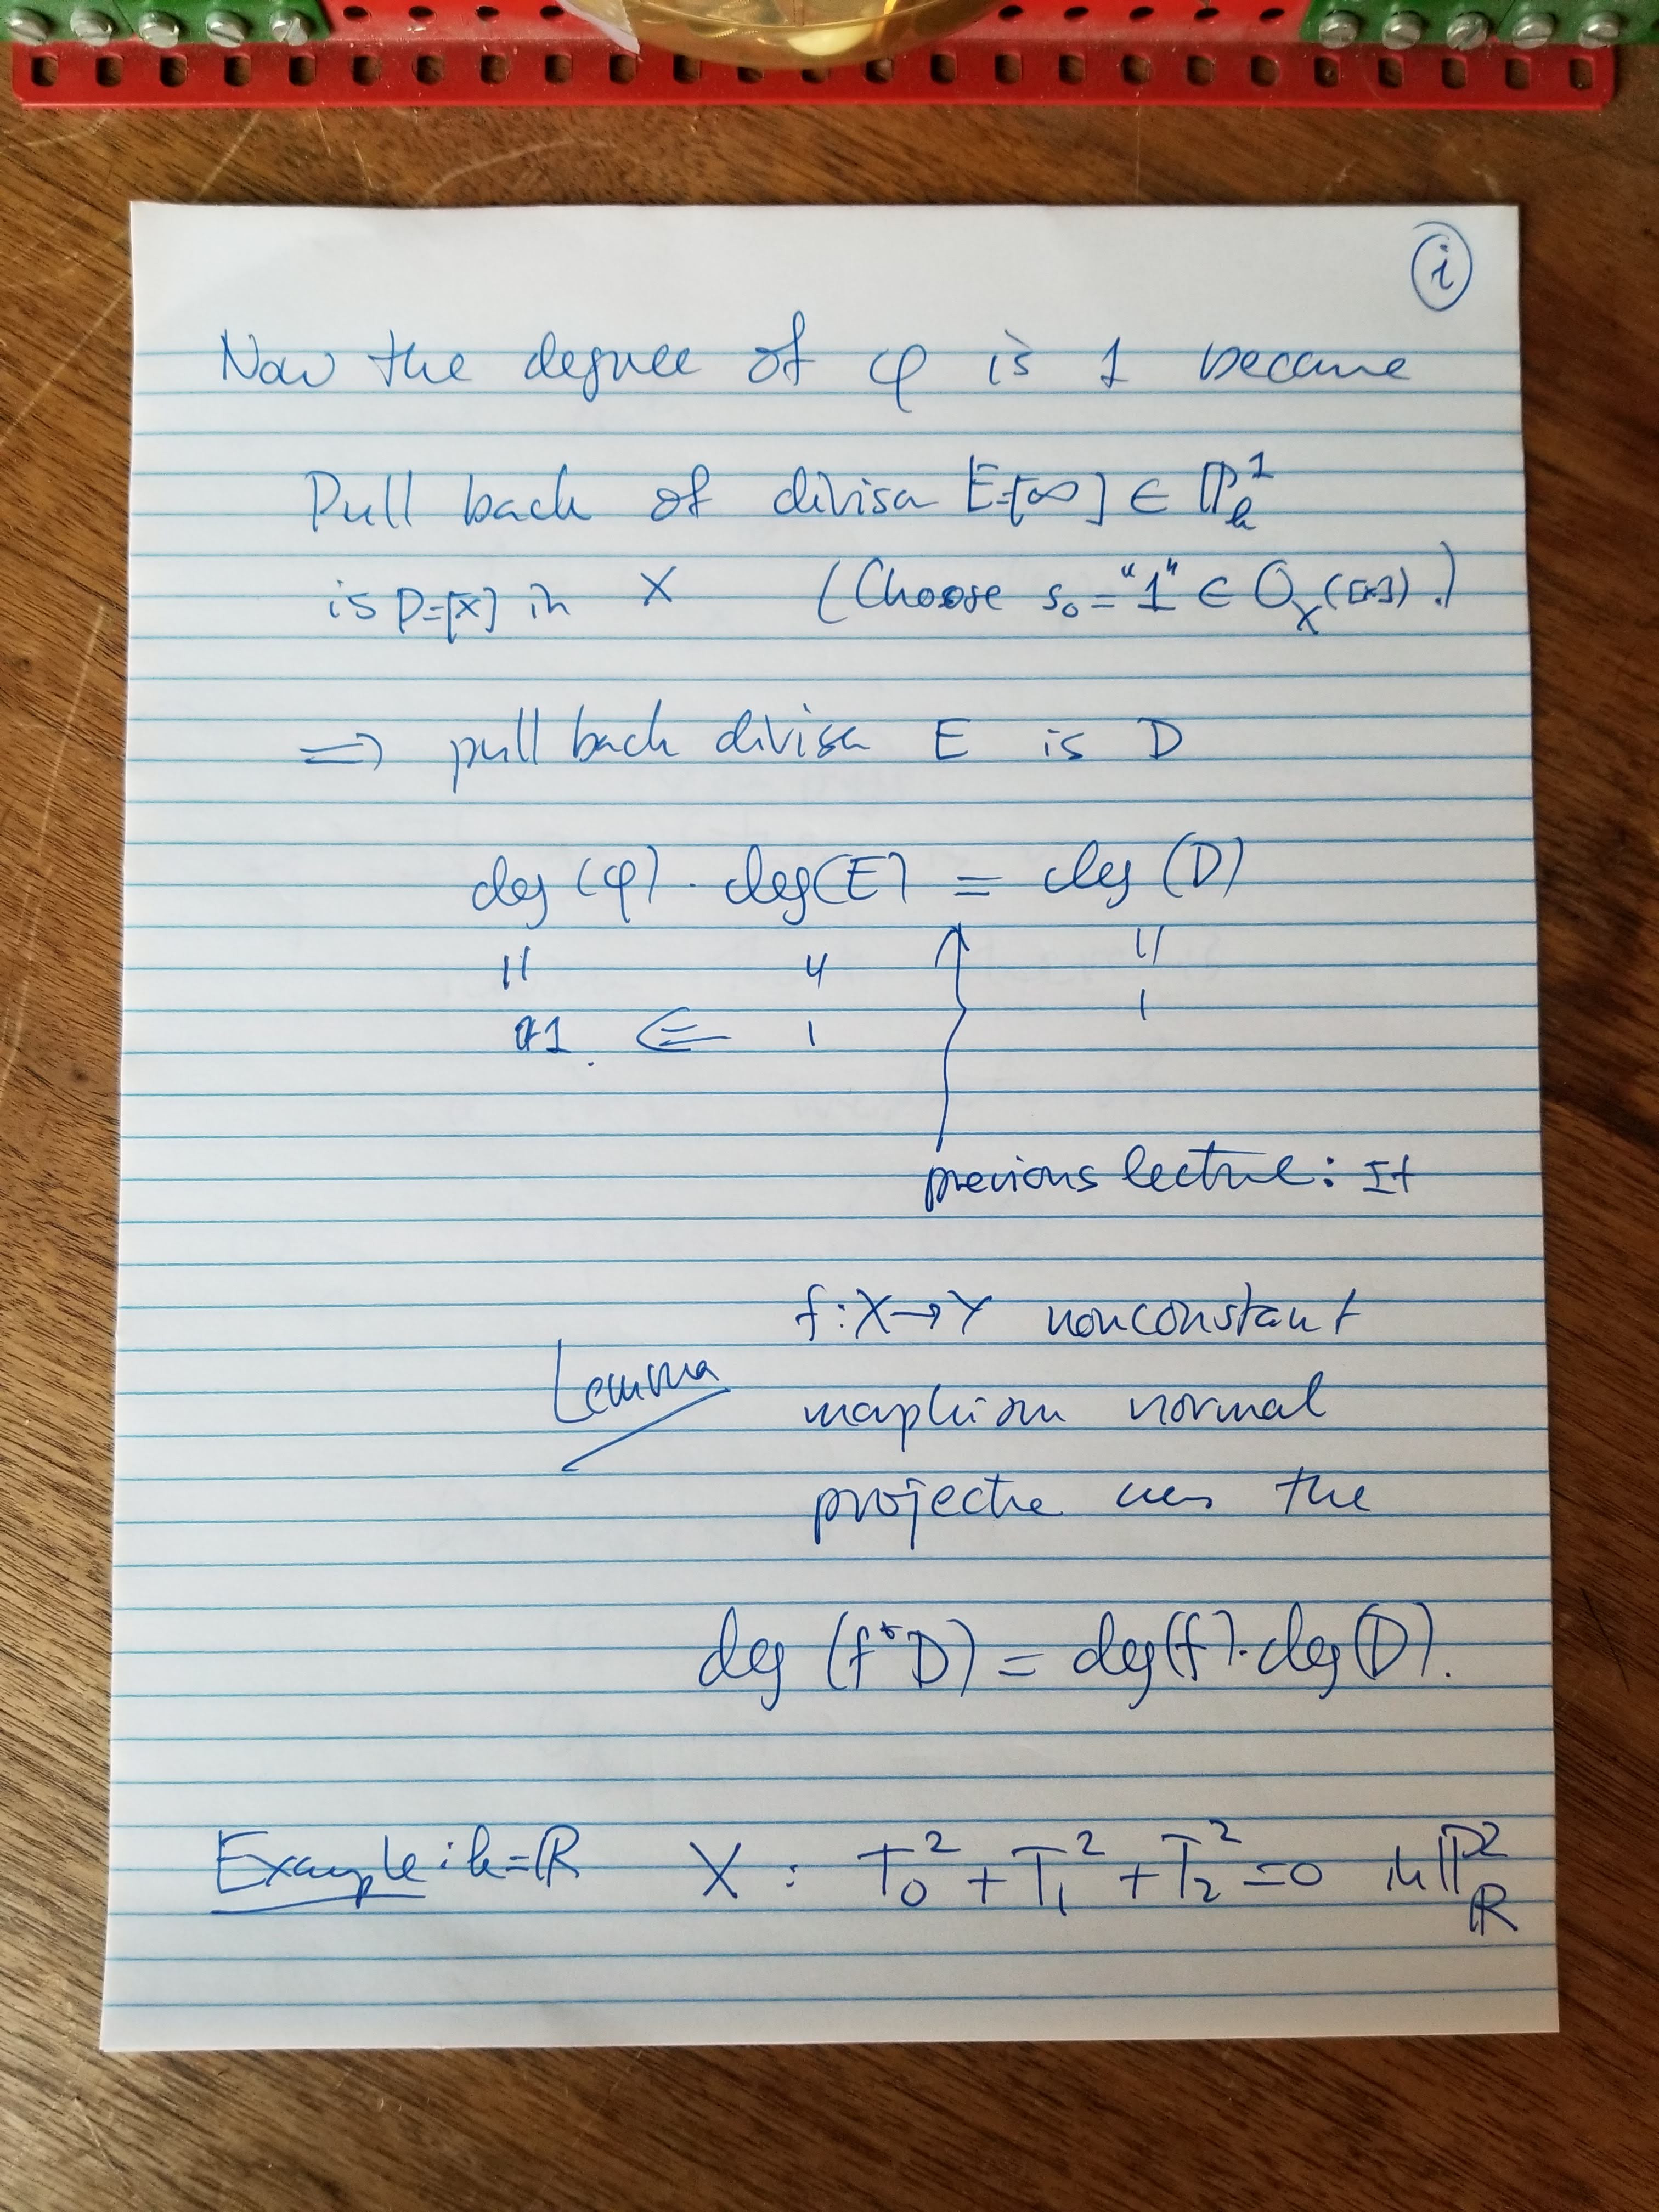 i
Now the degree of φ is 1 because
Pull back of divisor E=[∞] ∈ ℙ¹ₖ
is D=[x] in X (Choose s₀ = "1" ∈ O_X([x]).)
⇒ pull back divisor E is D
deg (φ) · deg(E) = deg (D)
11 11 11
1. ⇐ 1 1
previous lecture: If
f: X → Y nonconstant
Lemma morphism normal
projective curves the
deg (f*D) = deg(f)·deg(D).
Example: k=ℝ X : T₀² + T₁² + T₂² = 0 in ℙ²_ℝ